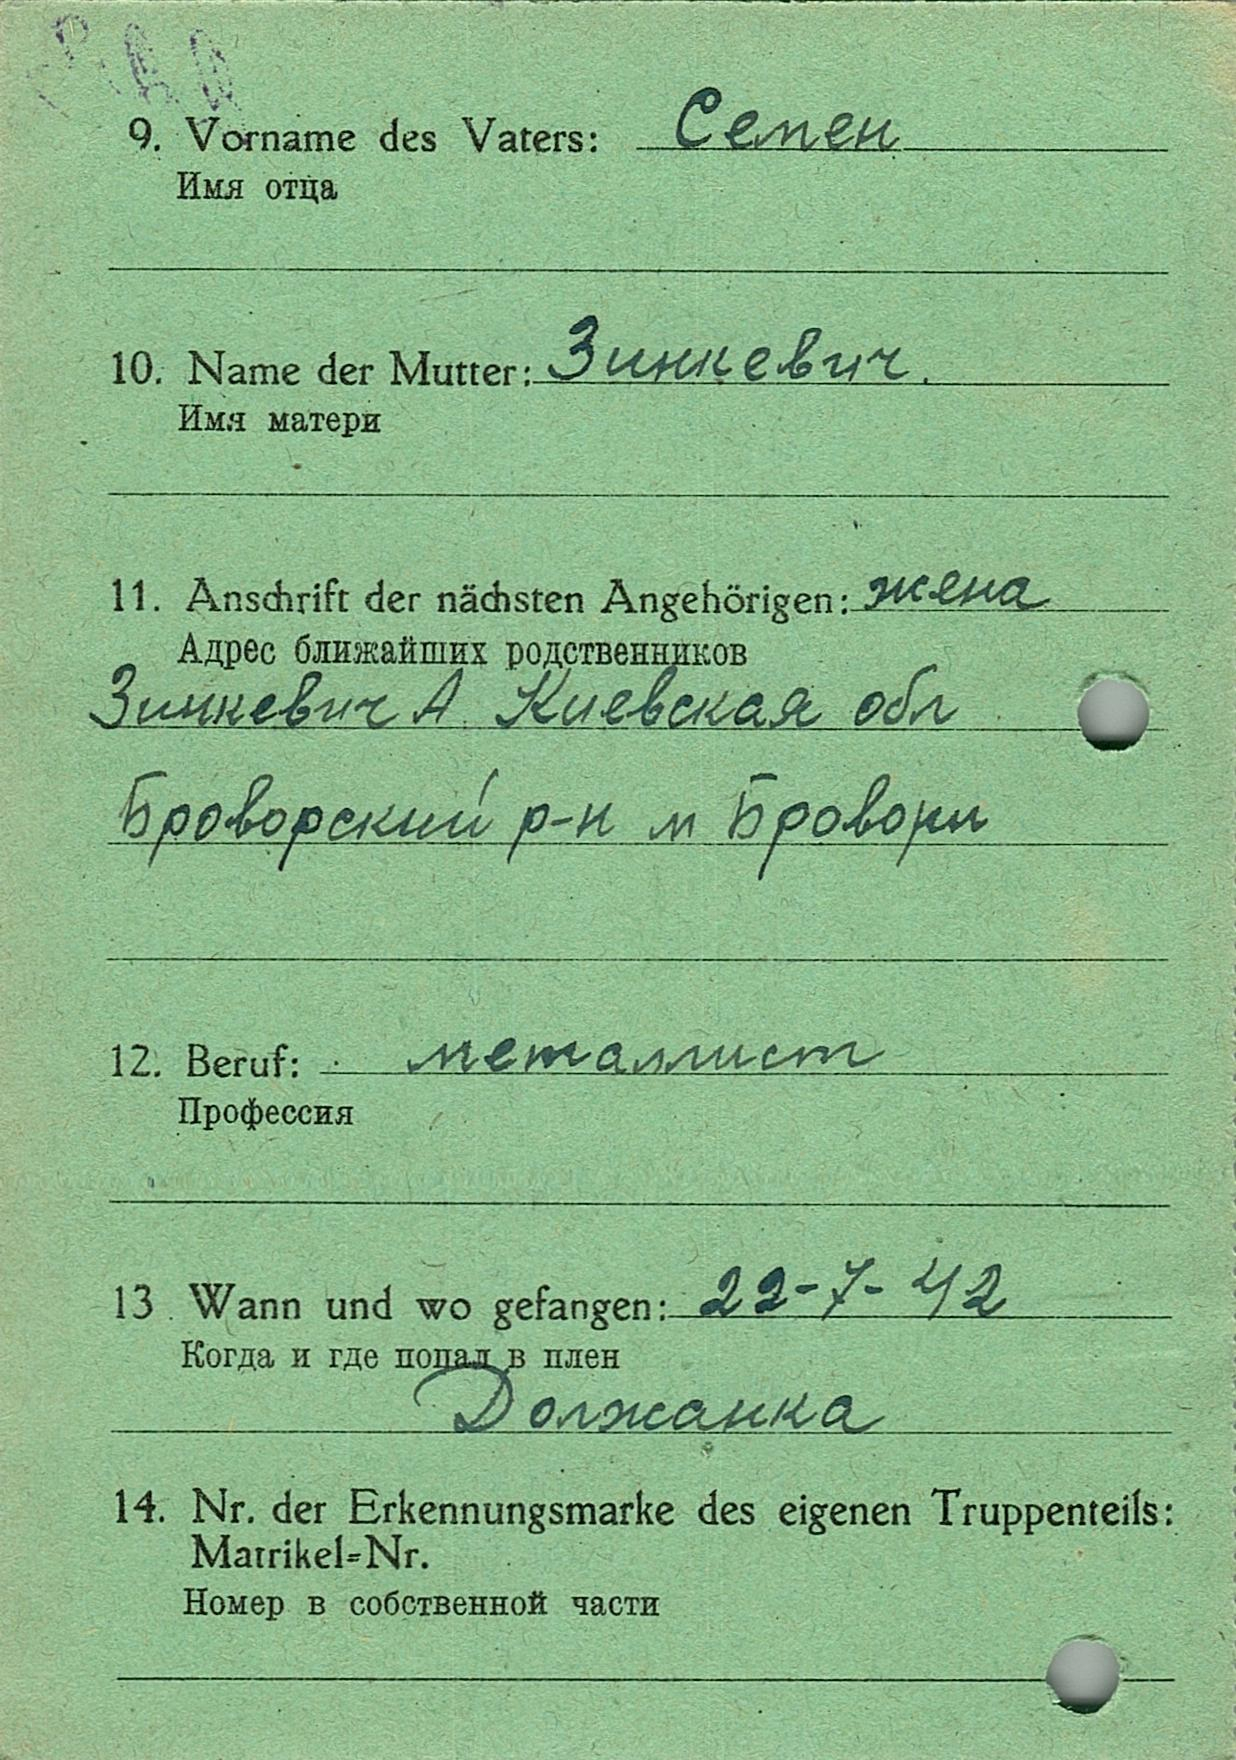 9. Vorname des Vaters: Семен
Имя отца
10. Name der Mutter: Зинкевич.
Имя матери
11. Anschrift der nächsten Angehörigen: жена
Адрес ближайших родственников
Зинкевич А. Киевская обл
Броворский р-н м Бровори
12. Beruf: металлист
Профессия
13. Wann und wo gefangen: 22-7-42
Когда и где попал в плен
Должанка
14. Nr. der Erkennungsmarke des eigenen Truppenteils:
Matrikel=Nr.
Номер в собственной части